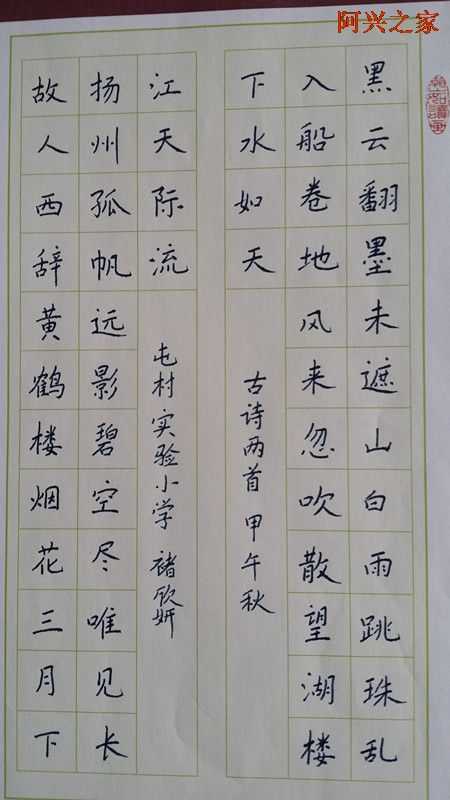 阿兴之家
黑云翻墨未遮山白雨跳珠乱
入船卷地风来忽吹散望湖楼
下水如天
古诗两首 甲午秋
故人西辞黄鹤楼烟花三月下
扬州孤帆远影碧空尽唯见长
江天际流
屯村实验小学 褚欣妍